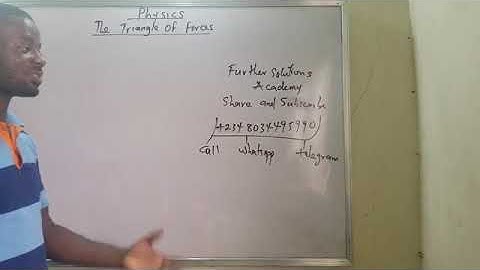 Physics
The Triangle of Forces
Further Solutions
Academy
Share and Subscribe
(4234 8034495990)
Call whatsapp telegram